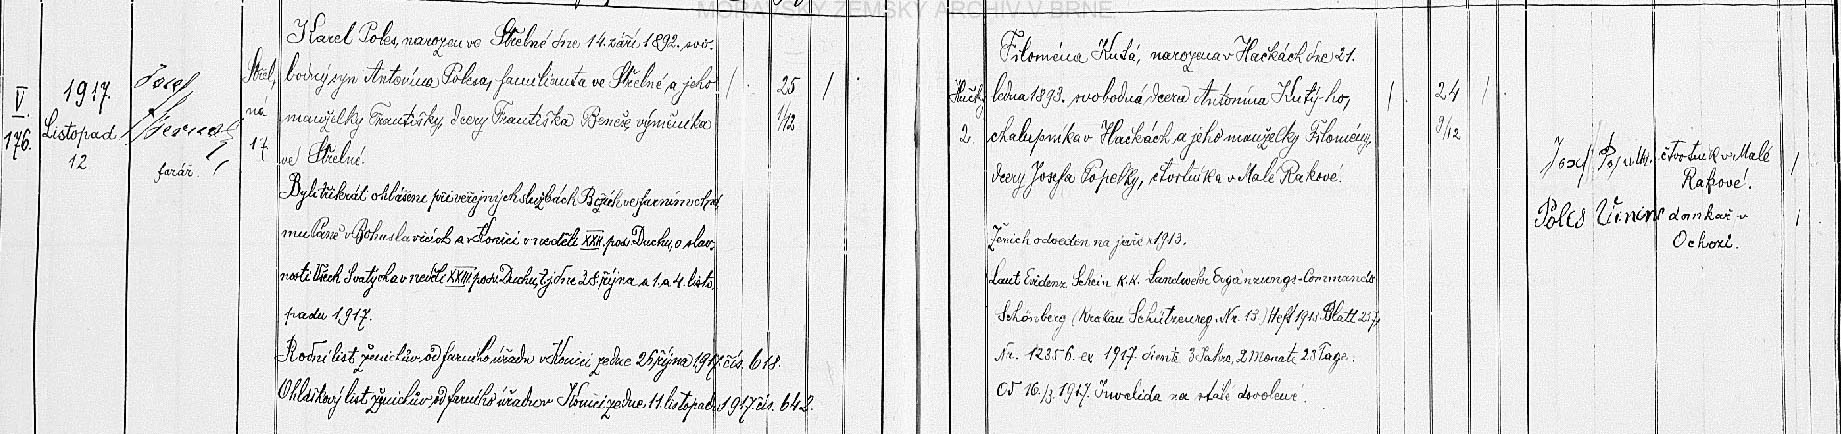 MORAVSKÝ ZEMSKÝ ARCHIV V BRNĚ
V.
176.
1917.
Listopad
12
Josef
farář.
Střel,
ná
17
Karel Poles, narozen ve Střelné dne 14. září 1892. svo,
bodný syn Antonína Polesa, familianta ve Střelné a jeho
manželky Františky, dcery Františka Beneše, výměnkáře
ve Střelné.
Byli třikrát ohlášeni při veřejných službách Božích ve farním chrá
mu Páně v Bohuslavicích a v Konici v neděli XXII. po sv. Duchu, o slav,
nosti Všech Svatých a v neděli XXIII. po sv. Duchu, tj. dne 28. října a 1. a 4. listo,
padu 1917.
Rodní list ženichův od farního úřadu v Konici ze dne 26. října 1917. čís. 618.
Ohláškový list ženichův od farního úřadu v Konici ze dne 11. listopadu 1917 čís. 642.
/ . 25 /
1/12
Hačky
2.
Filoména Kutá, narozena v Hačkách dne 21.
ledna 1893. svobodná dcera Antonína Kutý-ho,
chalupníka v Hačkách a jeho manželky Filomény,
dcery Josefa Popelky, čtvrtníka v Malé Rakové.
Ženich odveden na jaře r. 1913.
Laut Evidenz Schein K.K. Landwehr Ergänzungs-Commando
Schönberg ( Schützenreg. Nr. 13.) Heft 1913. Blatt 237,
Nr. 12356. ex 1917. dient 3 Jahre, 2 Monate 23 Tage.
Od 16./3. 1917. Invalida na stálé dovolené.
/ . 24 /
9/12
Josef čtvrtník v Malé
Rakové. /
Poles domkař v
Ochozi. /